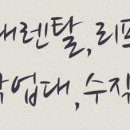 대렌탈,리프
작업대,수직